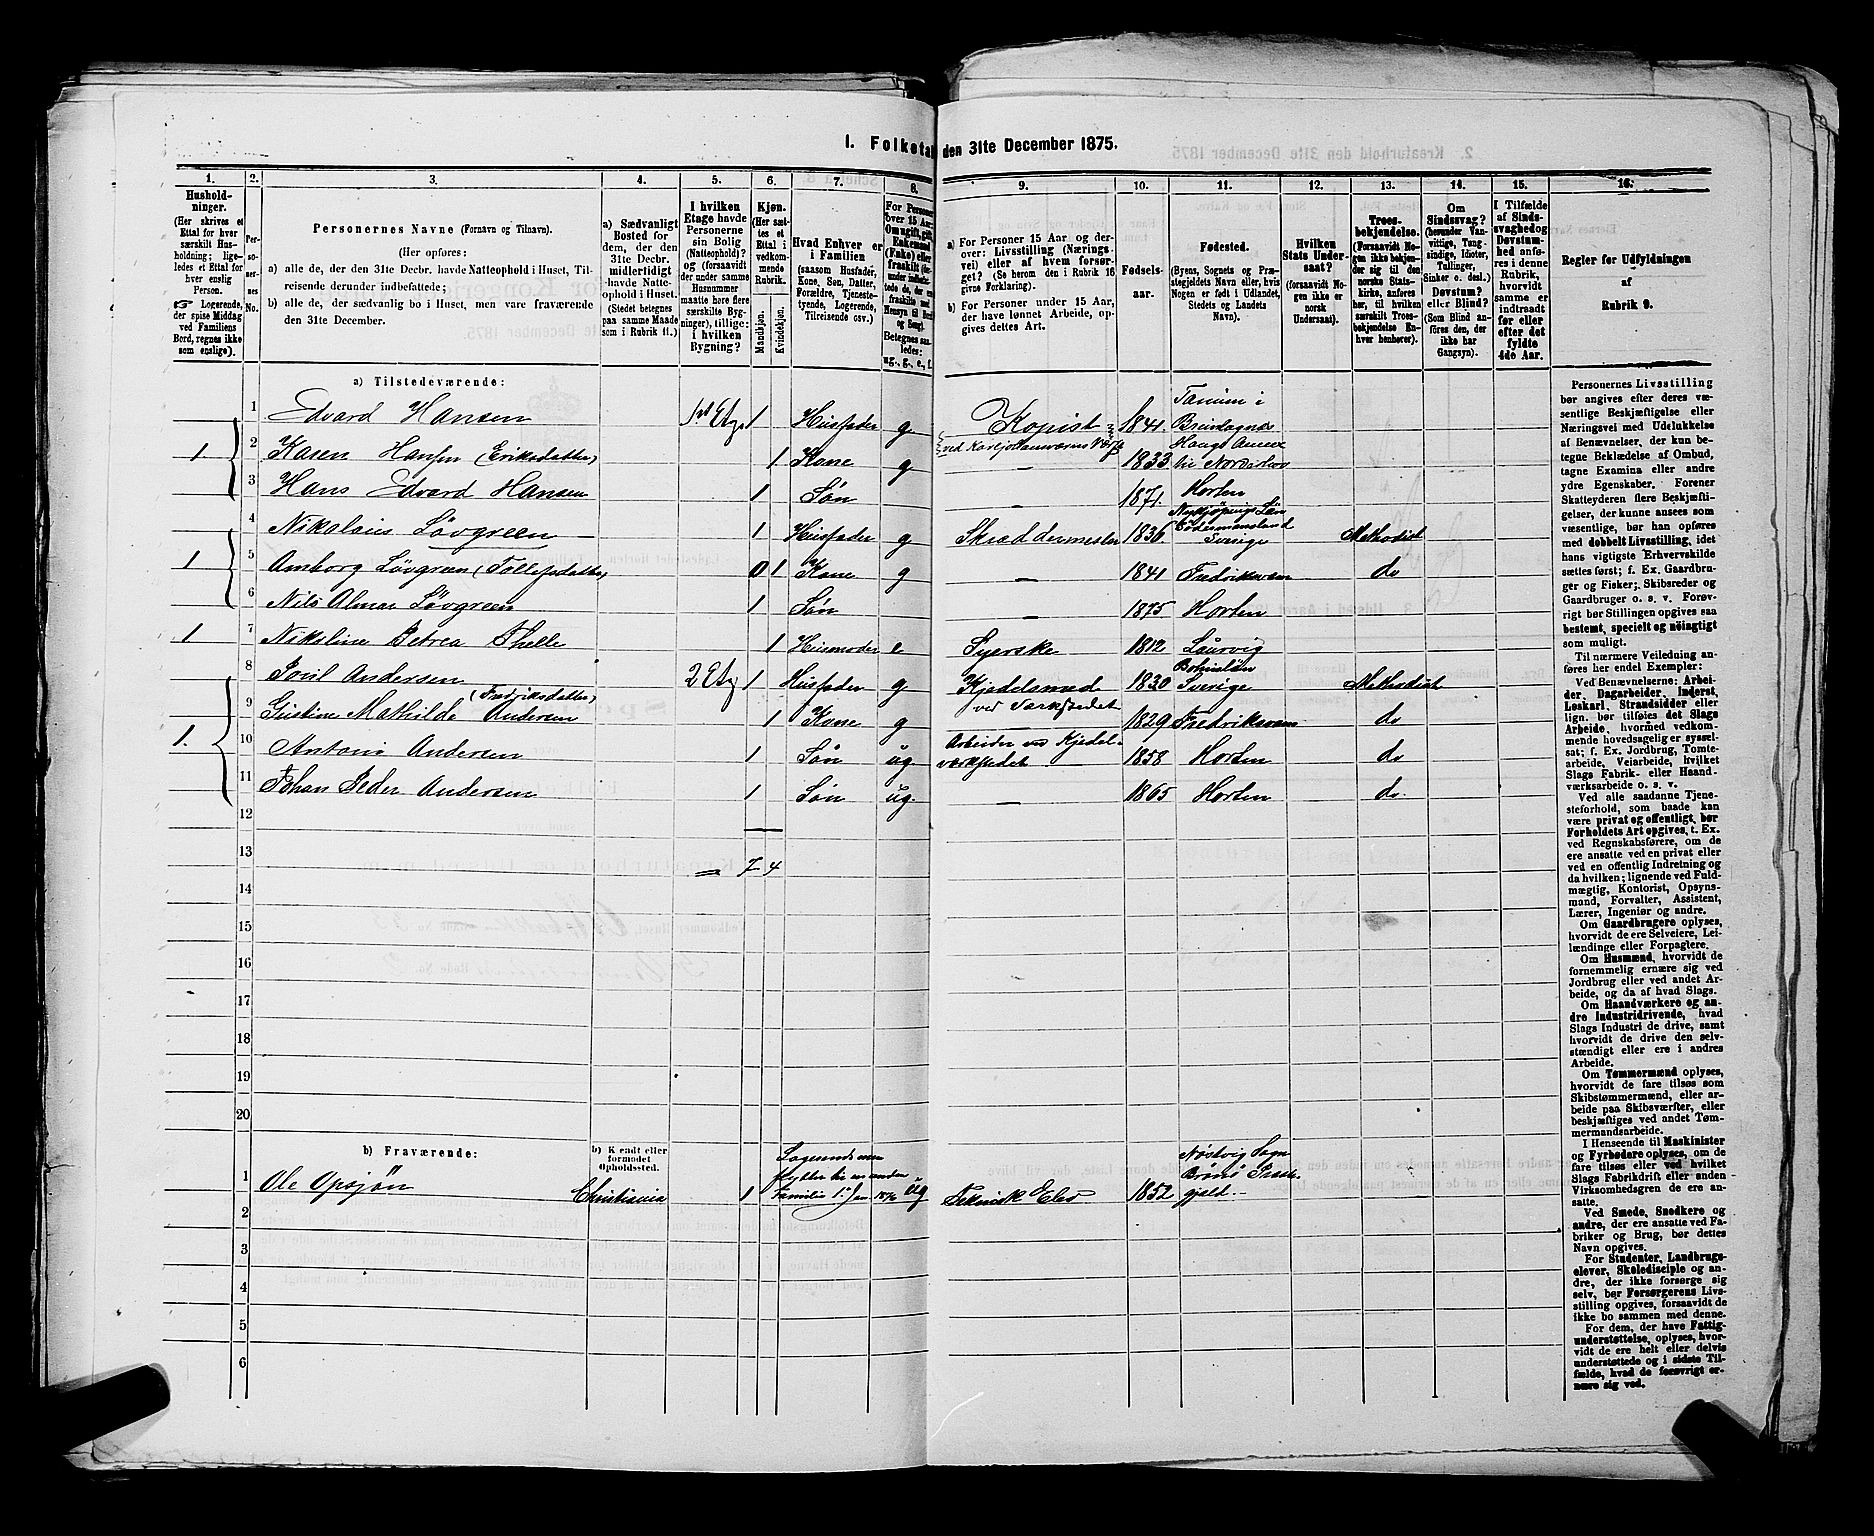 1. Folketal den 31te December 1875.
1. 2. 3. 4. 5. 6. 7. 8. 9. 10. 11. 12. 13. 14. 15. 16.
Hushold-
ninger.
(Her skrives et
Ettal for hver
særskilt Hus-
holdning; lige-
ledes et Ettal for
hver enslig
Person.
☞ Logerende,
der spise Middag
ved Familiens
Bord, regnes ikke
som enslige).
Per-
so-
ner-
nes
No.
Personernes Navne (Fornavn og Tilnavn).
(Her opføres:
a) alle de, der den 31te Decbr. havde Natteophold i Huset, Til-
reisende derunder indbefattede;
b) alle de, der sædvanlig bo i Huset, men vare fraværende
den 31te December.
a) Sædvanligt
Bosted for
dem, der den
31te Decbr.
midlertidigt
havde Natte-
ophold i Huset.
(Stedet betegnes
paa samme Maade
som i Rubrik 11.)
I hvilken
Etage havde
Personerne
sin Bolig
(Natteophold)?
og (forsaavidt
der under samme
Husnummer
maatte høre flere
særskilte Byg-
ninger), tillige:
i hvilken
Bygning?
Kjøn.
(Her sæt-
tes et
Ettal i
vedkom-
mende
Rubrik.
Mandkjøn.
Kvindekjøn.
Hvad Enhver er
i Familien
(saasom Husfader,
Kone, Søn, Datter,
Forældre, Tjeneste-
tyende, Logerende,
Tilreisende osv.)
a) For Personer 15 Aar og der-
over: Livsstilling (Nærings-
vei) eller af hvem forsør-
get? (Se herom den i Rubrik 16
givne Forklaring).
b) For Personer under 15 Aar,
der have lønnet Arbeide, op-
gives dettes Art.
Fødsels-
aar.
Fødested.
(Byens, Sognets og Præ-
stegjeldets Navn eller, hvis
Nogen er født i Udlandet,
Stedets og Landets
Navn).
Hvilken
Stats Under-
saat?
(forsaavidt No-
gen ikke er
norsk
Undersaat).
Troes-
bekjendelse.
(Forsaavidt No-
gen ikke bekjen-
der sig til den
norske Stats-
kirke, anføres
her, til hvilken
særskilt Troes-
bekjendelse En-
hver henhører).
Om
Sindssvag?
(herunder Van-
vittige, Tung-
sindige, Idioter,
Tullinger,
Sinker o. desl.)
Døvstum?
eller Blind?
(Som Blind an-
føres den, der
ikke har
Gangsyn).
I Tilfælde
af Sinds-
svaghed og
Døvstum-
hed anfø-
res i denne
Rubrik,
hvorvidt
samme er
indtraadt
før eller
efter det
fyldte
4de Aar.
Regler for Udfyldningen
af
Rubrik 9.
a) Tilstedeværende:
1 Edvard Hansen 1st Etg. 1 Husfader g Kopist ved Karljohansværns Værft 1841. Tanum i Brunlagnæs
1. 2 Karen Hansen (Eriksdatter) 1 Kone g — 1833 Haugs Annex til Norderhov
3 Hans Edvard Hansen 1 Søn 1871. Horten
4 Nikolaus Lövgreen 1 Husfader g Skræddermester 1836 Nykjøpings Län Södermanland Sverige Methodist
1 5 Amborg Lövgreen (Tollefsdatter) 0 1 Kone g — 1841 Fredriksværn do
6 Nils Almar Lövgreen 1 Søn — 1875 Horten
1 7 Nikoline Petrea Thelle 1 Husmoder e Syerske 1812 Laurvig
8 Povil Andersen 2 Etg 1 Husfader g Kjedelsmed ved Værkstedet 1830 Bohuslän Sverige Methodist
9 Gustine Mathilde (Fredriksdatter) Andersen 1 Kone g 1829 Fredriksværn do
1. 10 Anton Andersen 1 Søn ug Arbeider ved Kjedel-værkstedet 1858 Horten do
11 Johan Peder Andersen 1 Søn ug. — 1865 Horten do.
12
13 7 4
14
15
16
17
18
19
20
b) Fraværende:
b) Kjendt eller
formodet
Opholdssted.
1 Ole Opsjøn Christiania 1 Logerende men flytter til en anden Familie ug Teknisk Elev 1852 Brønø Præstegjeld
2
3
4
5
6
Personernes Livsstilling
bør angives efter deres væ-
sentlige Beskjæftigelse eller
Næringsvei med Udelukkelse
af Benævnelser, der kun be-
tegne Beklædelse af Ombud,
tagne Examina eller andre
ydre Egenskaber. Forener
Skatteyderen flere Beskjæfti-
gelser, der kunne ansees som
væsentlige, bør han opføres
med dobbelt Livsstilling, idet
hans vigtigste Erhvervskilde
sættes først; f. Ex. Gaardbru-
ger og Fisker; Skibsreder og
Gaardbruger o. s. v. Forøv-
rigt bør Stillingen opgives saa
bestemt, specielt og nöiagtigt
som muligt.
Til nærmere Veiledning an-
føres her endel Exempler:
Ved Benævnelserne: Arbei-
der, Dagarbeider, Inderst,
Løskarl, Strandsidder eller
lign. bør tilføies det Slags
Arbeide, hvormed vedkom-
mende hovedsagelig er syssel-
sat; f. Ex. Jordbrug, Tomte-
arbeide, Veiarbeide, hvilket
Slags Fabrik- eller Haand-
værksarbeide o. s. v.
Ved alle saadanne Tjene-
steforhold, som baade kan
være privat og offentligt, bør
Forholdets Art opgives, t. Ex.
ved Regnskabsførere, om de
ere ansatte ved en privat eller
ved en offentlig Indretning og
da hvilken; lignende ved Fuld-
mægtig, Kontorist, Opsyns-
mand, Forvalter, Assistent,
Lærer, Ingeniør og andre.
Om Gaardbrugere oplyses,
hvorvidt de ere Selveiere, Lei-
lændinge eller Forpagtere.
Om Husmænd, hvorvidt de
fornemmelig ernære sig ved
Jordbrug eller ved andet Ar-
beide, og da af hvad Slags.
Om Haandværkere og an-
dre Industridrivende, hvad
Slags Industri de drive, samt
hvorvidt de drive den selv-
stændigt eller ere i andres
Arbeide.
Om Tømmermænd oplyses,
hvorvidt de fare tilsøs som
Skibstømmermænd, eller ar-
beide paa Skibsværfter, eller
beskjæftiges ved andet Tøm-
mermandsarbeide.
I Henseende til Maskinister
og Fyrbødere oplyses, om de
fare tilsøs eller ved hvilket
Slags Fabrikdrift eller anden
Virksomhedsgren de ere an-
satte.
Ved Smede, Snedkere og
andre, der ere ansatte ved Fa-
briker og Brug, bør dettes
Navn opgives.
For Studenter, Landbrugs-
elever, Skoledisciple og an-
dre, der ikke forsørge sig
selv, bør Forsørgerens Livs-
stilling opgives, forsaavidt de
ikke bo sammen med denne.
For dem, der have Fattig-
understøttelse, oplyses, hvor-
vidt de ere helt eller delvis
understøttede og i sidste Til-
fælde, hvad de forøvrigt er-
nære sig ved.